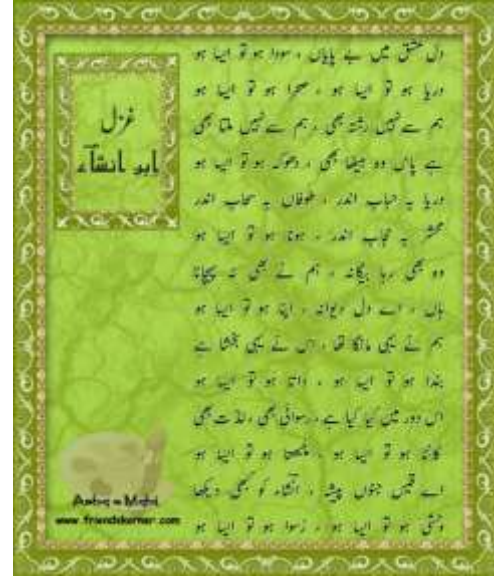 غزل
ابن انشاء
دل عشق میں بے پایاں ، سودا ہو تو ایسا ہو
دریا ہو تو ایسا ہو ، صحرا ہو تو ایسا ہو
ہم سے نہیں رشتہ بھی ، ہم سے نہیں ملتا بھی
ہے پاس وہ بیٹھا بھی ، دھوکہ ہو تو ایسا ہو
دریا بہ حباب اندر ، طوفاں بہ سحاب اندر
محشر بہ حجاب اندر ، ہونا ہو تو ایسا ہو
وہ بھی رہا بیگانہ ، ہم نے بھی نہ پہچانا
ہاں ، اے دل دیوانہ ، اپنا ہو تو ایسا ہو
ہم نے یہی مانگا تھا ، اس نے یہی بخشا ہے
بندا ہو تو ایسا ہو ، داتا ہو تو ایسا ہو
اس دور میں کیا کیا ہے ، رسوائی بھی ، لذت بھی
کانٹا ہو تو ایسا ہو ، چبھتا ہو تو ایسا ہو
اے قیس جنوں پیشہ ، انشاء کو کبھی دیکھا
وحشی ہو تو ایسا ہو ، رسوا ہو تو ایسا ہو
www.friendskorner.com